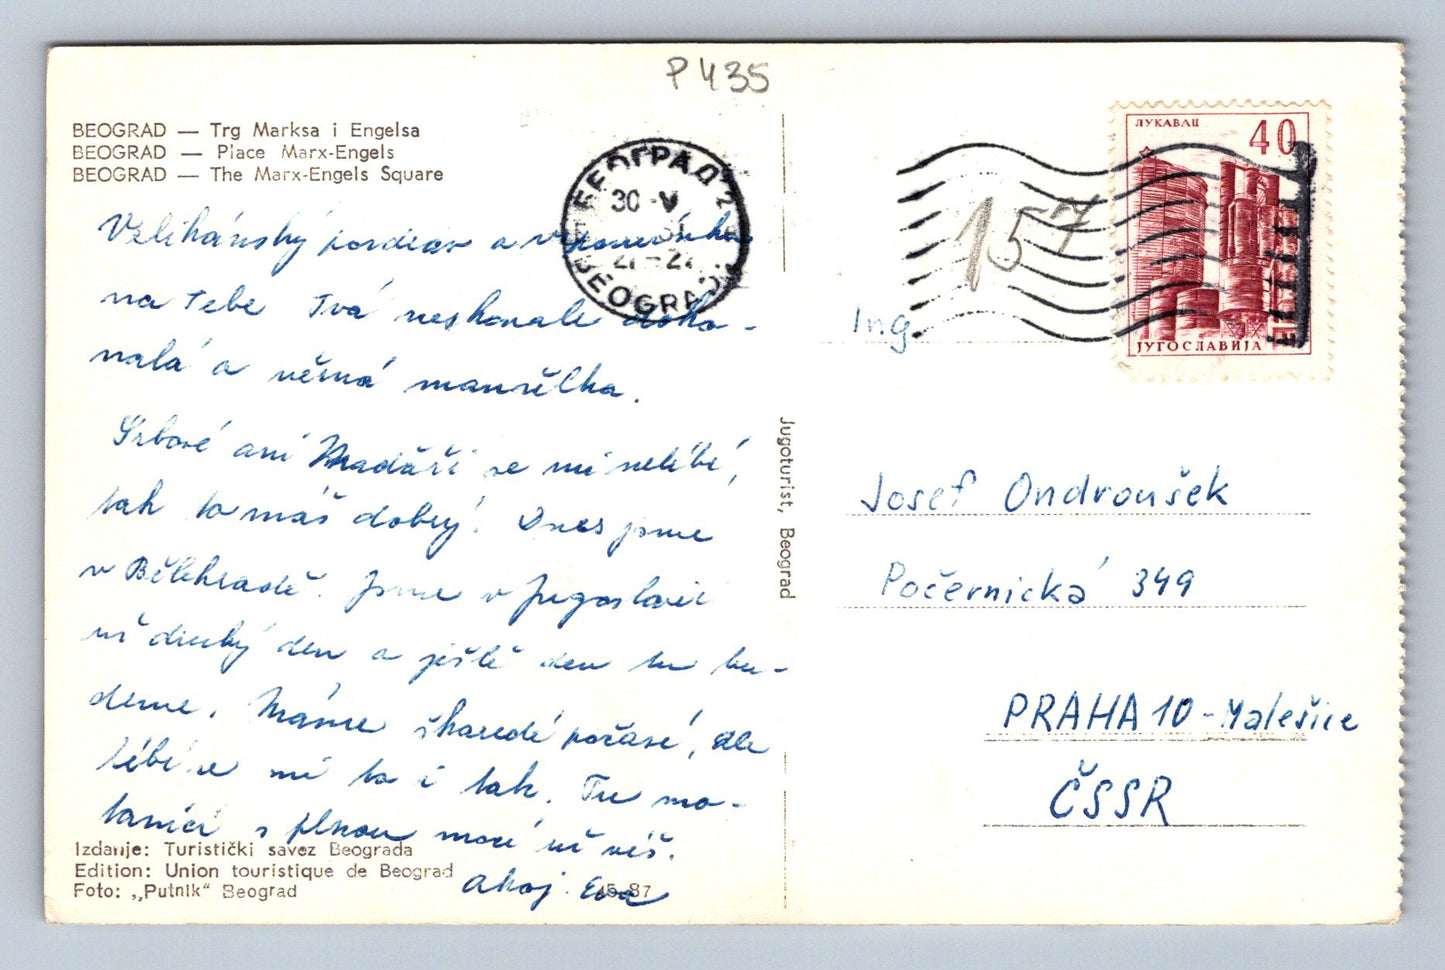 P 435
BEOGRAD — Trg Marksa i Engelsa
BEOGRAD — Place Marx-Engels
BEOGRAD — The Marx-Engels Square
БЕОГРАД 2
30 V
BEOGRAD
pozdrav a vzpomínka
na Tebe Tvá neskonale doko-
nalá a věrná manželka.
Srbové ani Maďaři se mi nelíbí,
tak to máš dobrý. Dnes jsme
v Bělehradě. Jsme v Jugoslavii
už druhý den a ještě den tu bu-
deme. Máme škaredé počasí, ale
líbí se mi to i tak. Tu
s plnou mocí už víš.
Ahoj Eva
Izdanje: Turistički savez Beograda
Edition: Union touristique de Beograd
Foto: „Putnik“ Beograd
Jugoturist, Beograd
157
ЛУКАВАЦ
40
ЈУГОСЛАВИЈА
Ing
Josef Ondroušek
Počernická 349
PRAHA 10 - Malešice
ČSSR